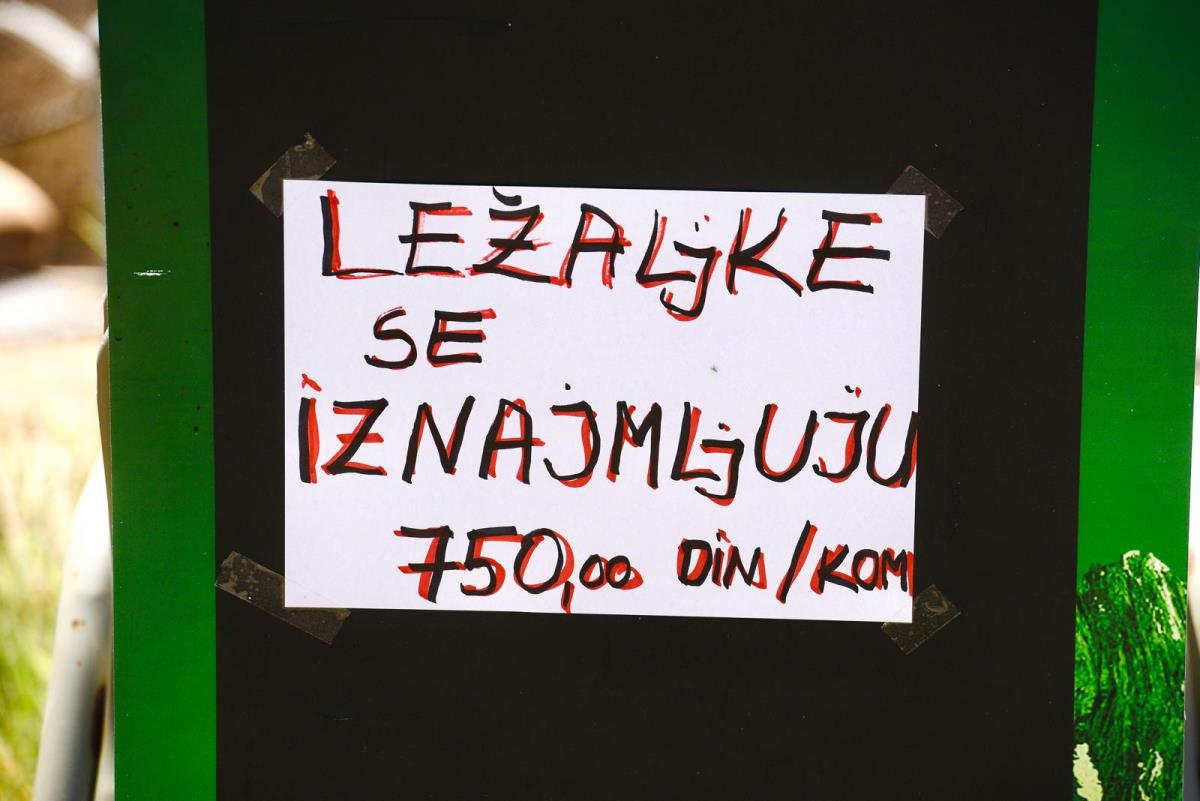 LEŽALjKE
SE
IZNAJMLjUJU
750,00 DIN/KOM